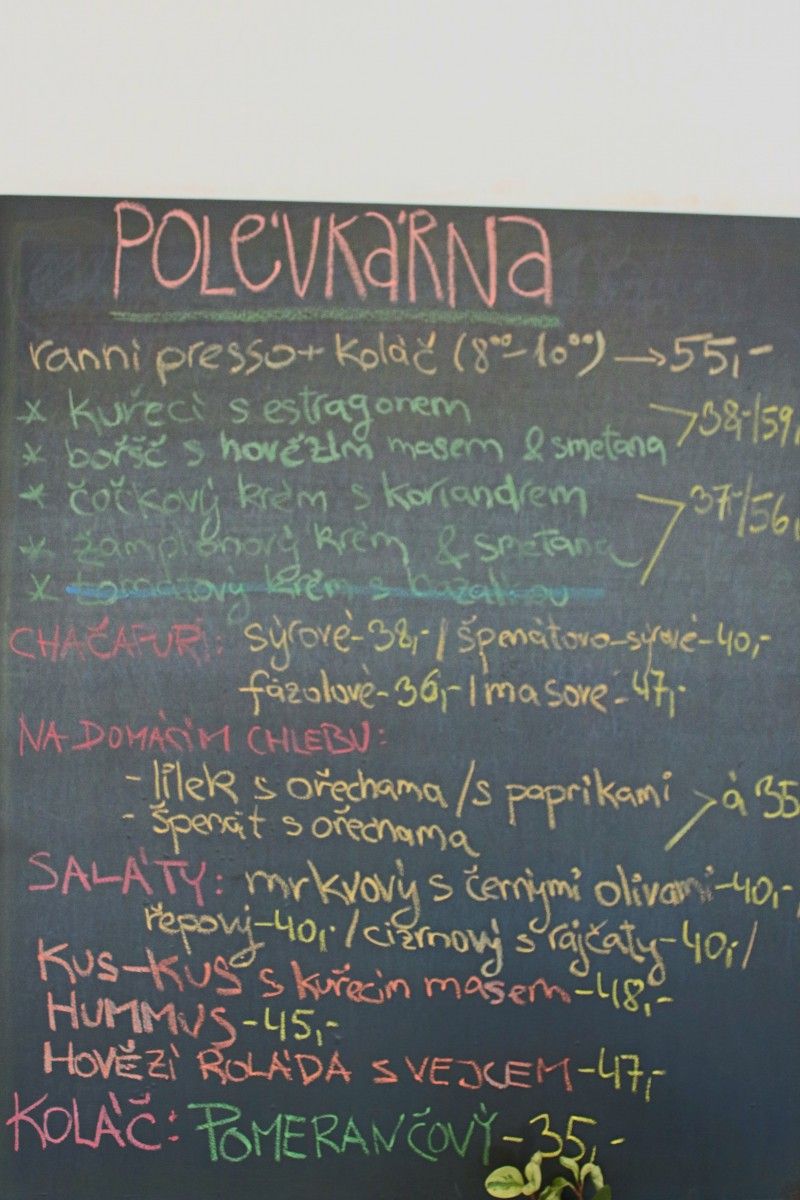 POLÉVKÁRNA
ranní presso + koláč (8⁰⁰-10⁰⁰) → 55,-
* kuřecí s estragonem
* boršč s hovězím masem & smetana 38,-/59,
* čočkový krém s koriandrem
* žampionový krém & smetana 37,-/56,
* tomatový krém s bazalkou
CHAČAPURI: sýrové-38,-/špenátovo-sýrové-40,-
fazolové-36,-/masové-47,-
NA DOMÁCÍM CHLEBU:
- lilek s ořechama/s paprikami
- špenát s ořechama à 35
SALÁTY: mrkvový s černými olivami-40,-
řepový-40,-/cizrnový s rajčaty-40,-/
KUS-KUS s kuřecím masem-48,-
HUMMUS-45,-
HOVĚZÍ ROLÁDA S VEJCEM-47,-
KOLÁČ: POMERANČOVÝ-35,-